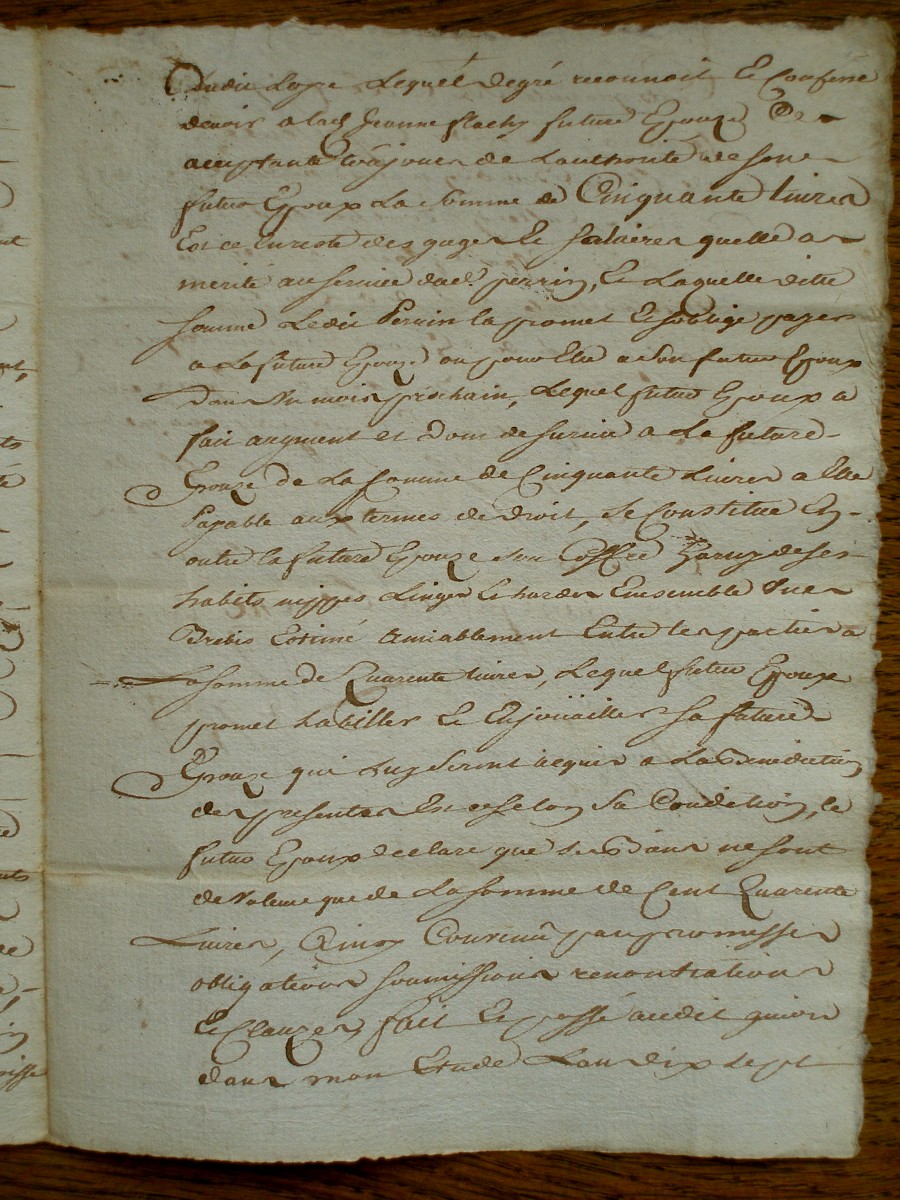 dudit Lope Lequel degré reconnoit et Confesse
devoir a lad Jeanne flachy future Epouze
acceptante toujours de Lauthorité de son
futur Epoux La somme de Cinquante livres
Est ce Enreste des gages et salaires quelle a
merité au service dud. perrin, et Laquelle ditte
somme Ledit Perrin la promet et soblige payer
a La future Epouze ou pour Elle a son futur Epoux
dans un mois prochain, Lequel futur Epoux a
fait augment et don de survie a La future
Epouze de La somme de Cinquante Livres a Elle
Payable aux termes de droit, se Constitue En
outre la future Epouze son Coffre Garny de ses
habits nippes Linges et hardes Ensemble une
Brebis Estimé Amiablement Entre les parties a
La somme de Quarente livres, Lequel futur Epoux
promet habiller et Enjoüailler sa future
Epouze qui Luy seront acquis a La Bénédiction
des presentes Et ce selon sa Condition, le
futur Epoux declare que ses Biens ne sont
de Valeur que de La somme de Cent Quarente
Livres, Ainsy Convenu par promesses
obligations soumissions renontiations
et Clauzes, fait et passé audit
dans mon Etude Lan dix sept
nt
nt,
ts
té
nts
ne
a,
in
isse